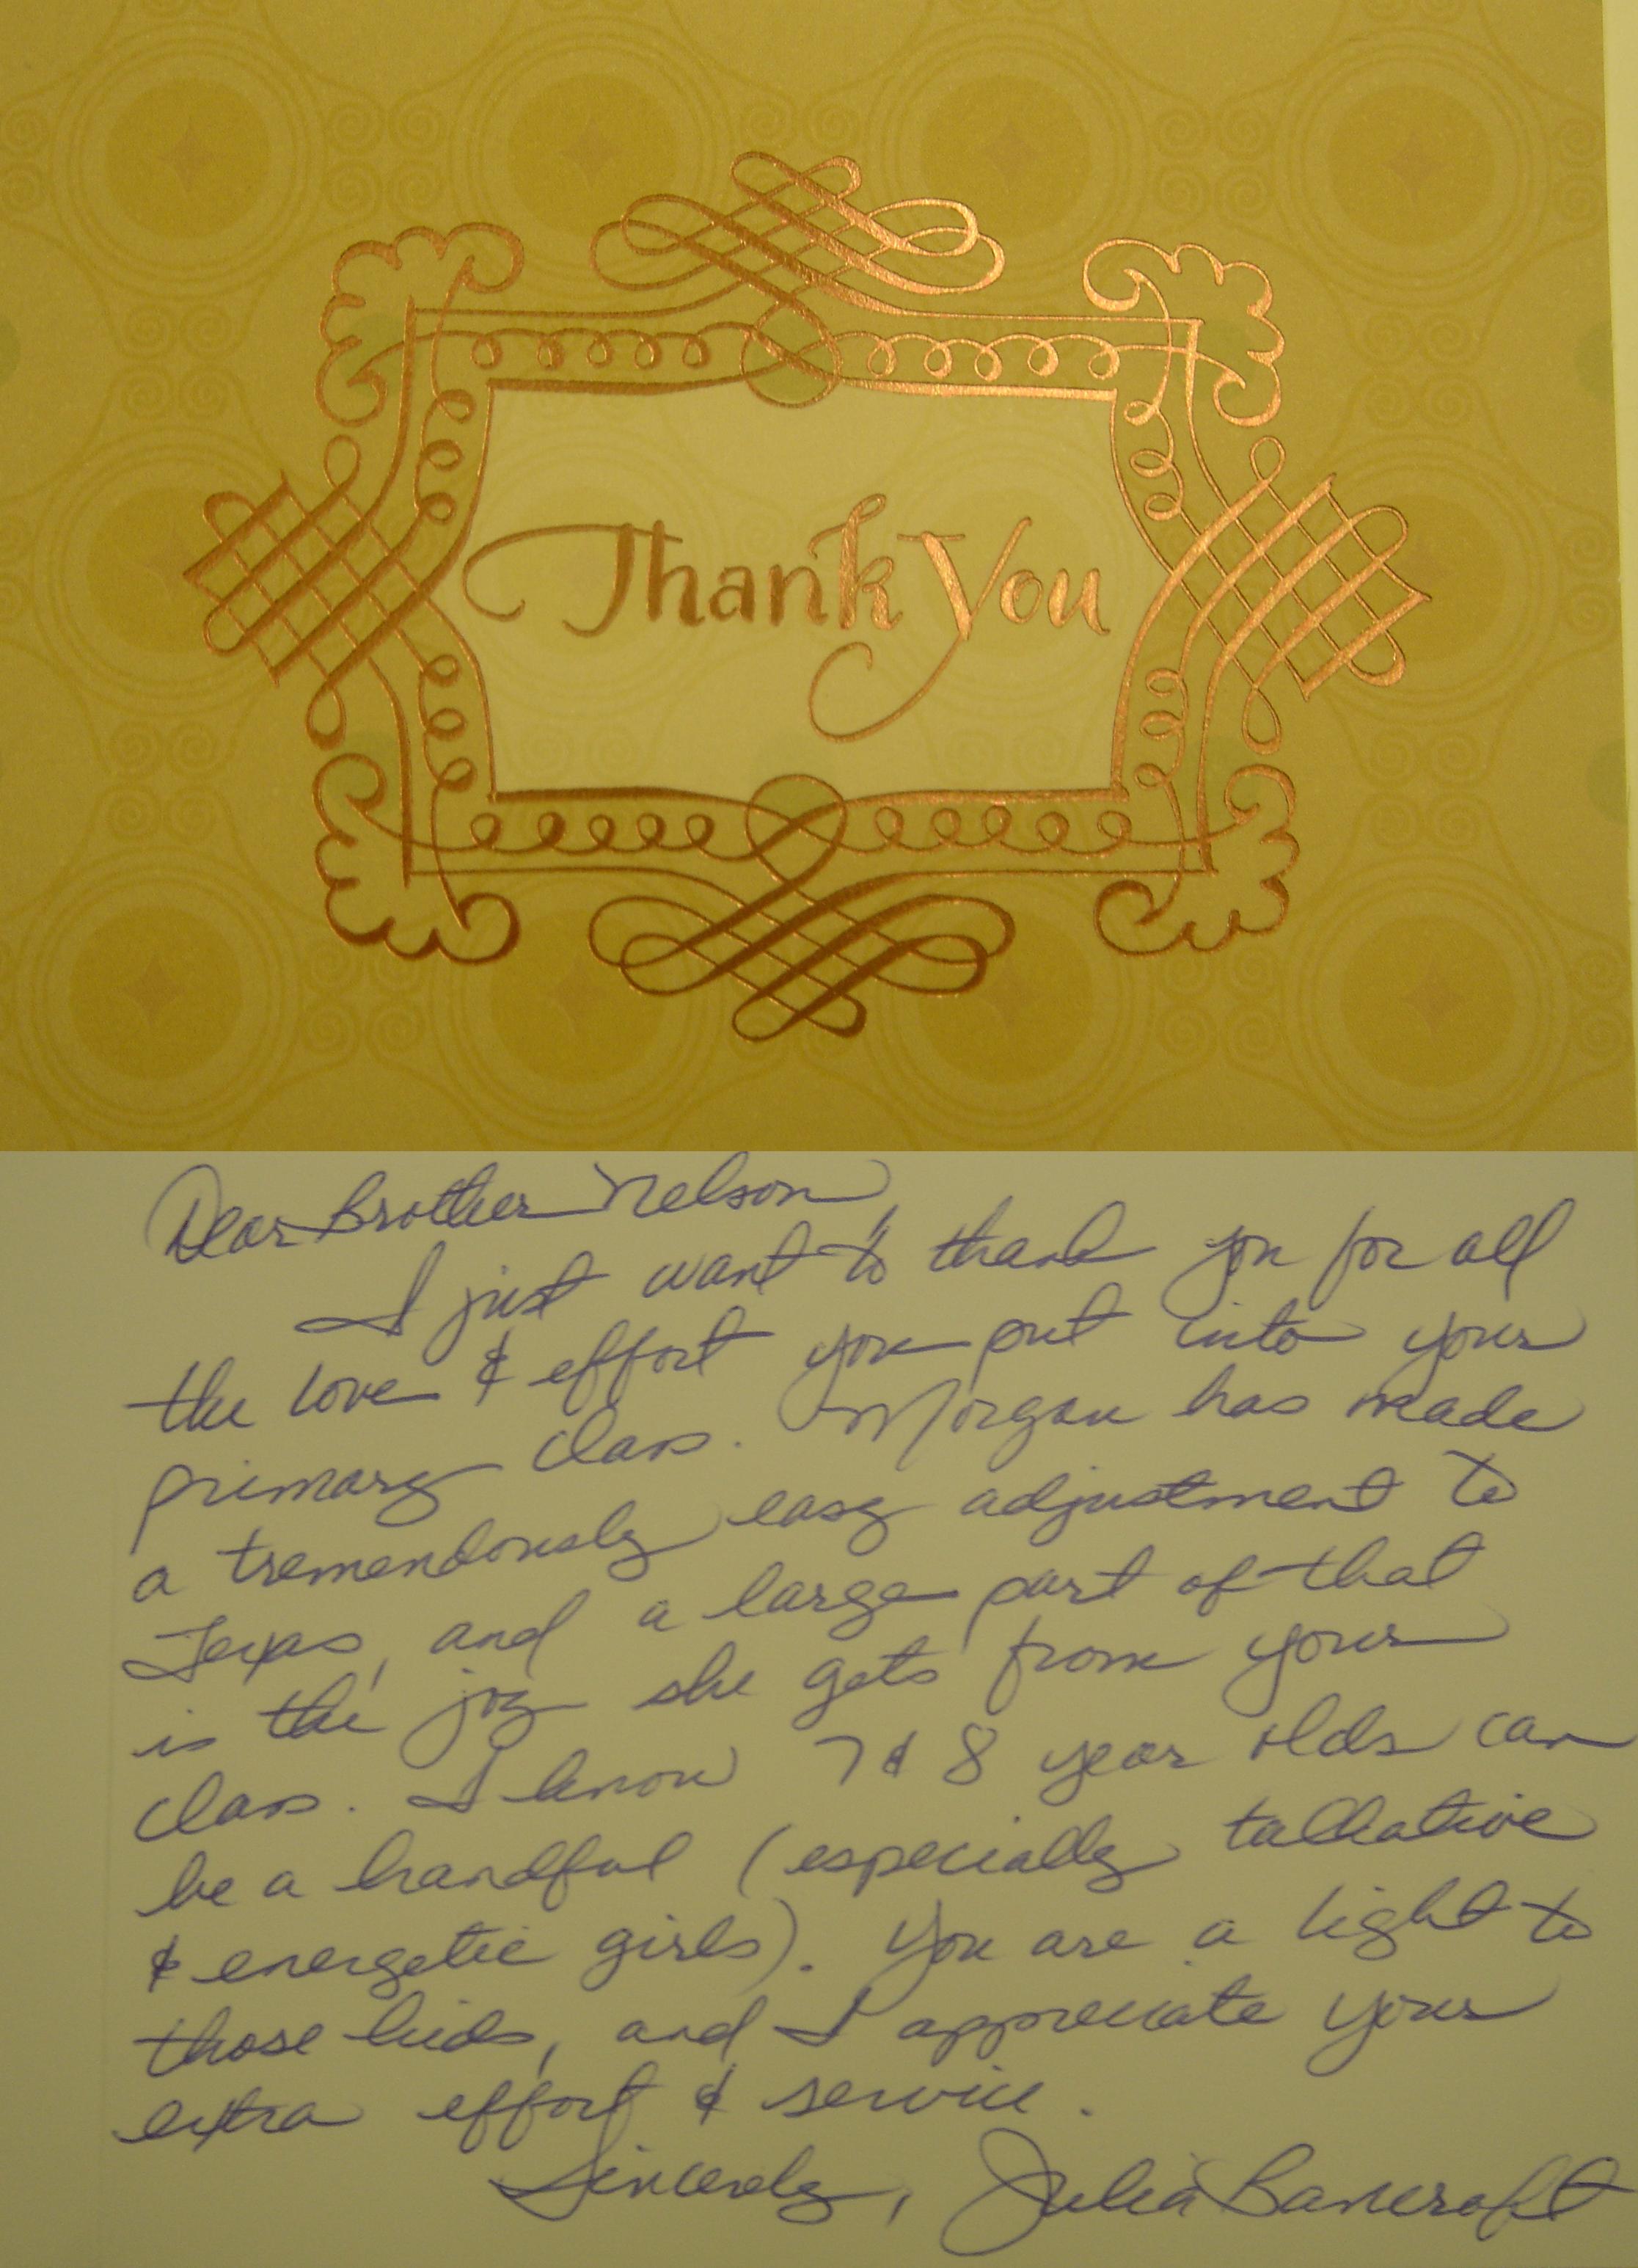 Thank You
Dear Brother Nelson,
I just want to thank you for all
the love & effort you put into your
primary class. Morgan has made
a tremendously easy adjustment to
Texas, and a large part of that
is the joy she gets from your
class. I know 7 & 8 year olds can
be a handful (especially talkative
& energetic girls). You are a light to
those kids, and I appreciate your
extra effort & service.
Sincerely, Julia Bancroft